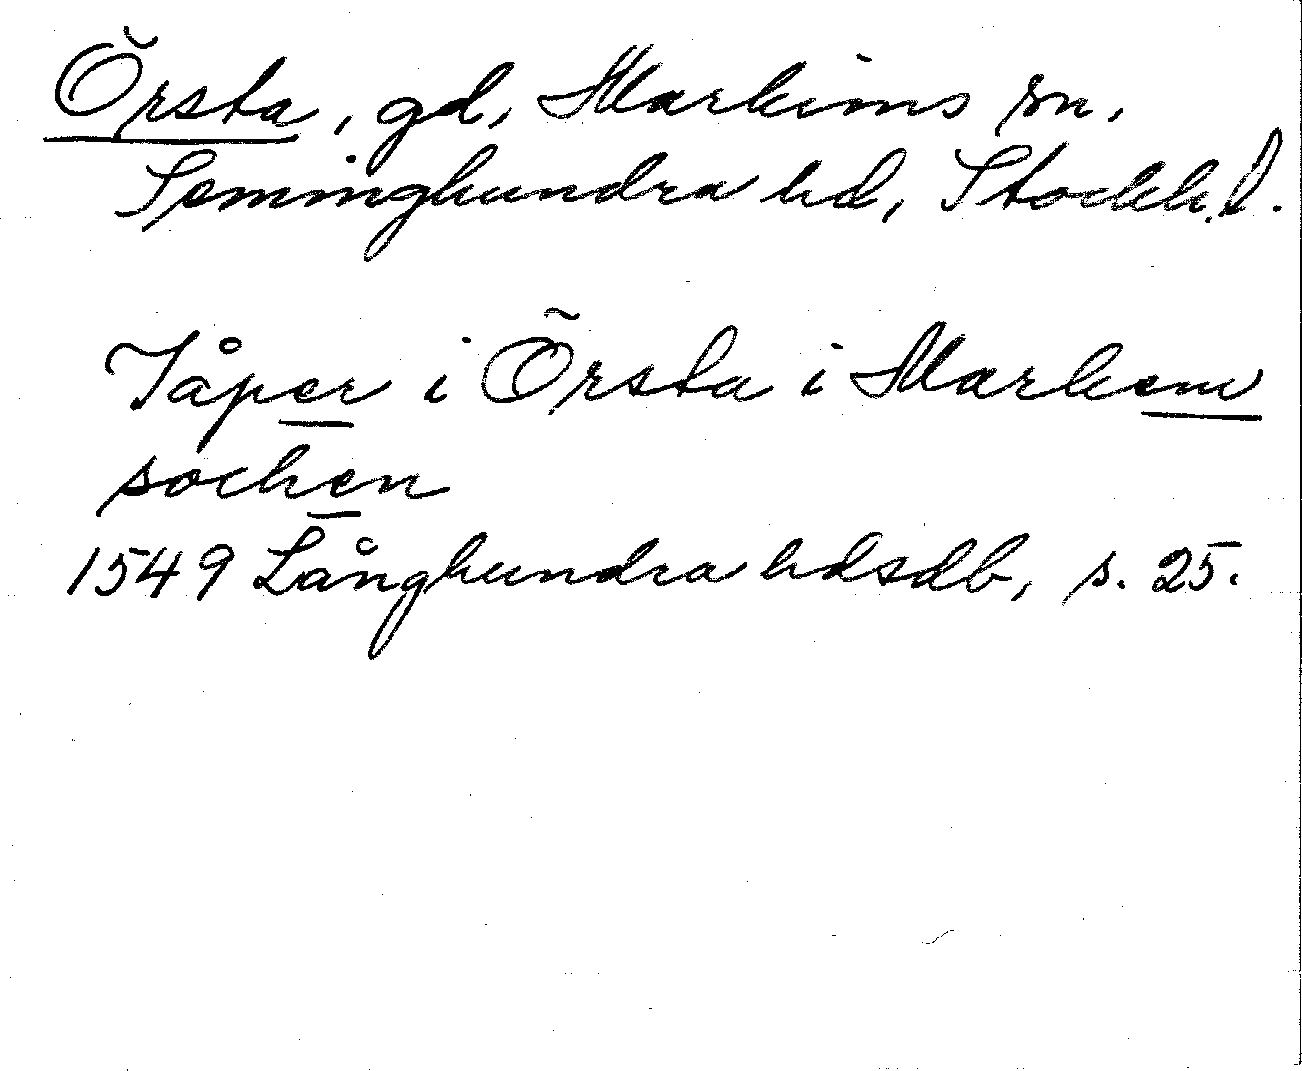 Örsta, gd, Markims sn,
Seminghundra hd, Stockh. l.
Jåper i Örsta i Markem
socken
1549 Långhundra hdsdb, s. 25.